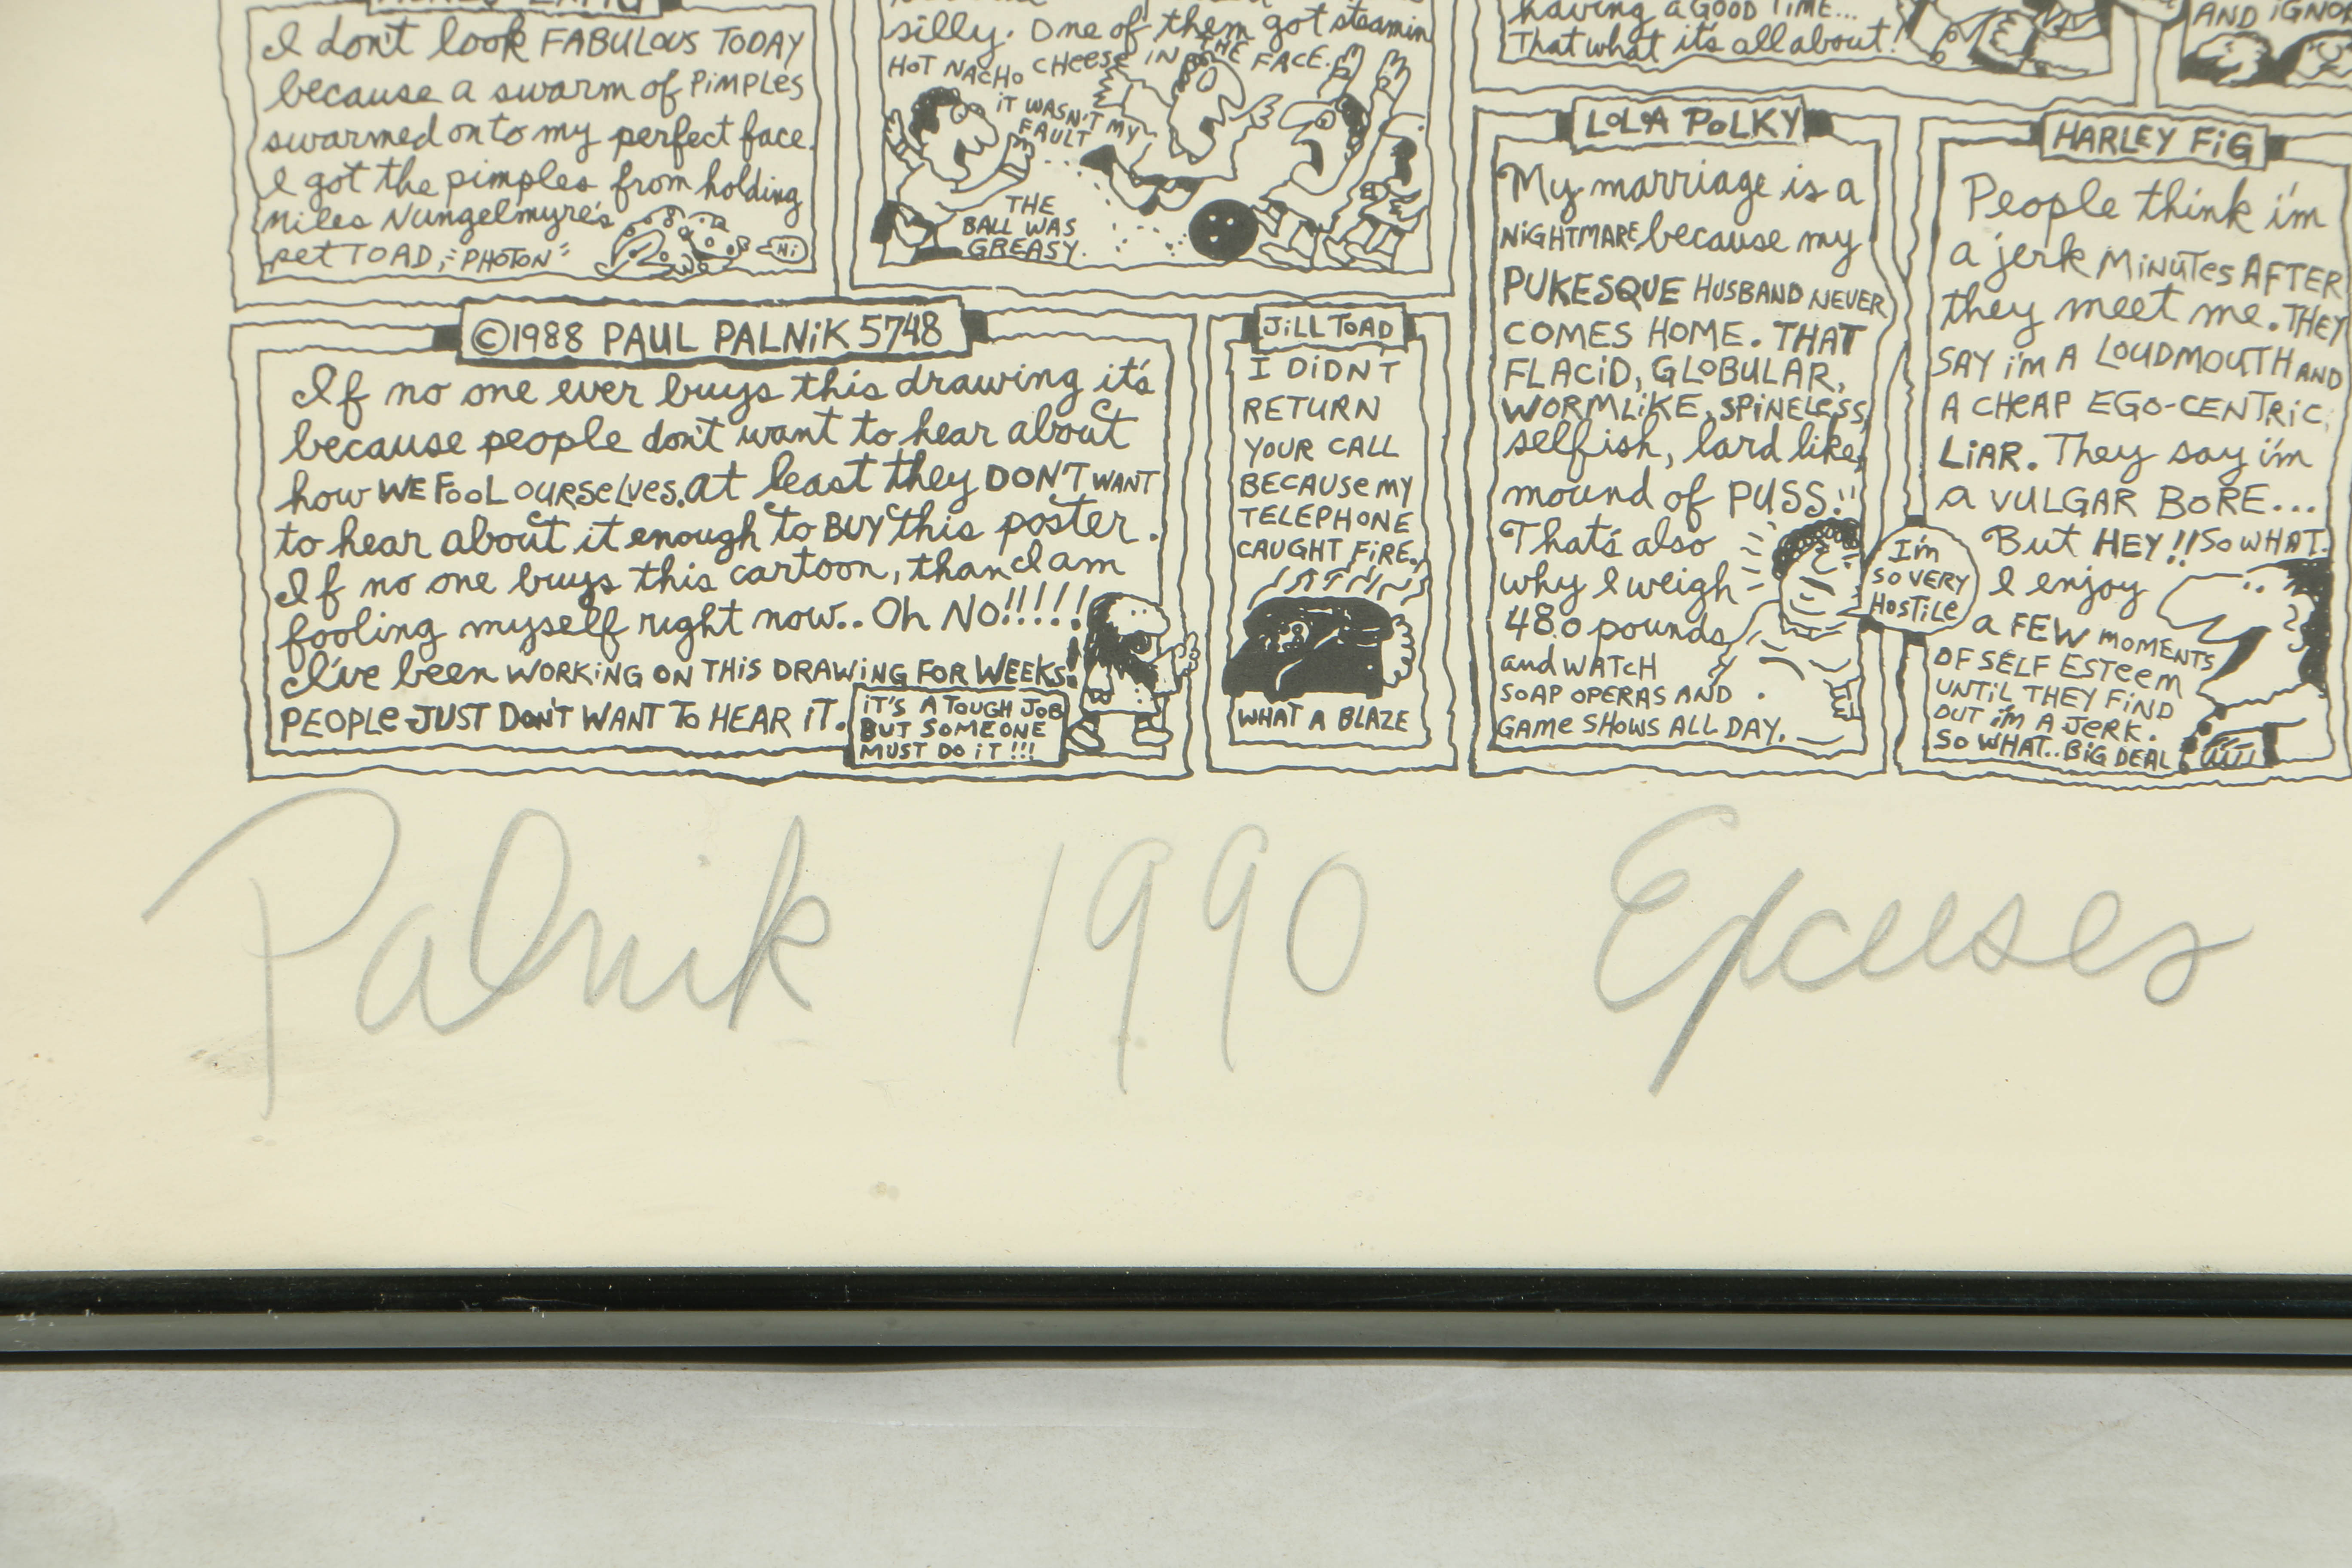 I don't look FABULOUS TODAY
because a swarm of PiMPLES
swarmed on to my perfect face.
I got the pimples from holding
Niles Nungelmyre's
pet TOAD, "PHOTON"
Hi
silly. One of them got steamin
HOT NACHO CHEESE IN THE FACE.
iT WASN'T MY
FAULT
THE
BALL WAS
GREASY.
having a GOOD TIME...
That what it's all about!
AND iGNO
©1988 PAUL PALNiK 5748
If no one ever buys this drawing it's
because people don't want to hear about
how WE FOOL OURSELVES. At least they DON'T WANT
to hear about it enough to BUY this poster.
If no one buys this cartoon, than I am
fooling myself right now.. Oh NO!!!!!
I've been WORKiNG ON THiS DRAWiNG FOR WEEKS!
PEOPLE JUST DON'T WANT TO HEAR iT.
iT'S A TOUGH JOB
BUT SOMEONE
MUST DO iT!!!
JiLL TOAD
I DiDN'T
RETURN
YOUR CALL
BECAUSE MY
TELEPHONE
CAUGHT FiRE.
WHAT A BLAZE
LOLA POLKY
My marriage is a
NiGHTMARE because my
PUKESQUE HUSBAND NEVER
COMES HOME. THAT
FLACiD, GLOBULAR,
WORMLiKE, SPiNELESS,
selfish, lard like,
mound of PUSS!!
That's also
why I weigh
480 pounds
and WATCH
SOAP OPERAS AND
GAME SHOWS ALL DAY.
I'm
SO VERY
HOSTiLE
HARLEY FiG
People think i'm
a jerk MiNUTES AFTER
they meet me. THEY
SAY i'M A LOUDMOUTH AND
A CHEAP EGO-CENTRiC,
LiAR. They say i'm
a VULGAR BORE...
But HEY!! SO WHAT.
I enjoy
a FEW MOMENTS
OF SELF ESTEEM
UNTiL THEY FiND
OUT iM A JERK.
SO WHAT.. BiG DEAL
Palnik 1990 Excuses